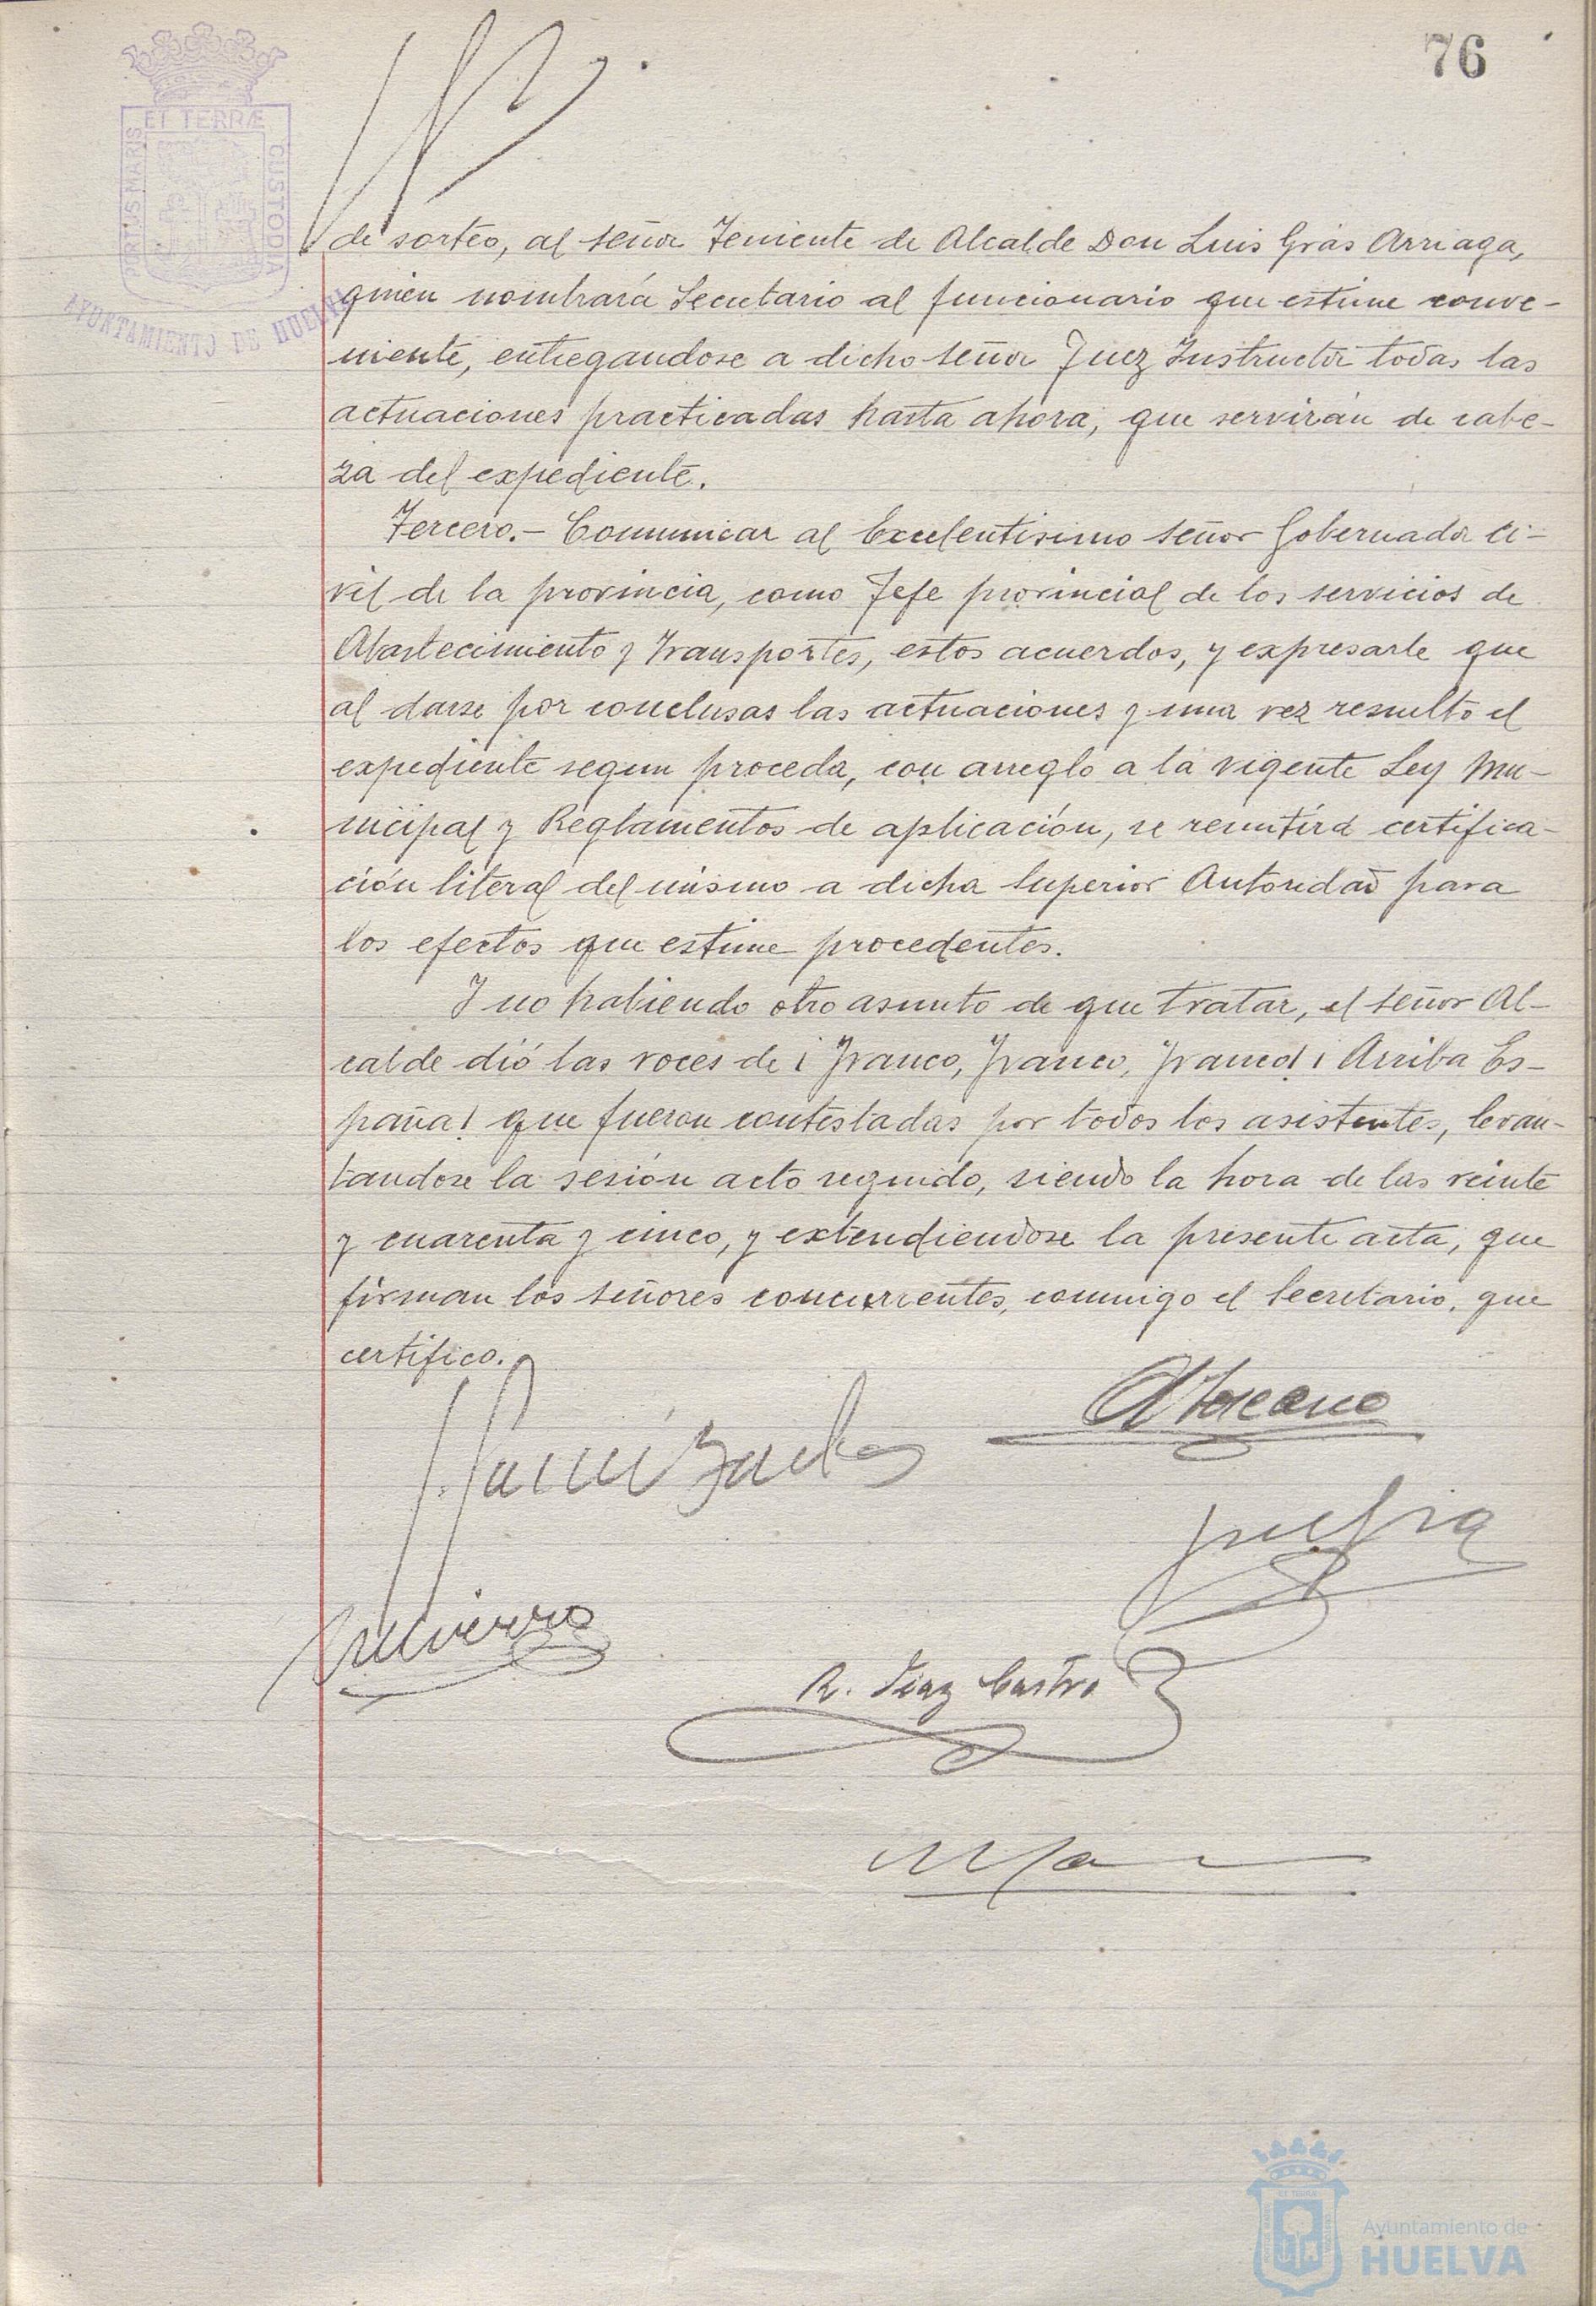 76
ET TERRÆ
PORTUS MARIS
CUSTODIA
AYUNTAMIENTO DE HUELVA
de sorteo, al señor Teniente de Alcalde Don Luis Gras Arriaga,
quien nombrará Secretario al funcionario que estime conve-
niente, entregandose a dicho señor Juez Instructor todas las
actuaciones practicadas hasta ahora, que servirán de cabe-
za del expediente.
Tercero.- Comunicar al Excelentisimo señor Gobernador Ci-
vil de la provincia, como Jefe provincial de los servicios de
Abastecimiento y Transportes, estos acuerdos, y expresarle que
al darse por conclusas las actuaciones y una vez resuelto el
expediente segun proceda, con arreglo a la vigente Ley Mu-
nicipal y Reglamentos de aplicación, se remitirá certifica-
ción literal del mismo a dicha Superior Autoridad para
los efectos que estime procedentes.
Y no habiendo otro asunto de que tratar, el señor Al-
calde dió las voces de ¡Franco, Franco, Franco! ¡Arriba Es-
paña! que fueron contestadas por todos los asistentes, levan-
tandose la sesión acto seguido, siendo la hora de las veinte
y cuarenta y cinco, y extendiendose la presente acta, que
firman los señores concurrentes, conmigo el Secretario, que
certifico.
R. Diaz Castro
Ayuntamiento de
HUELVA